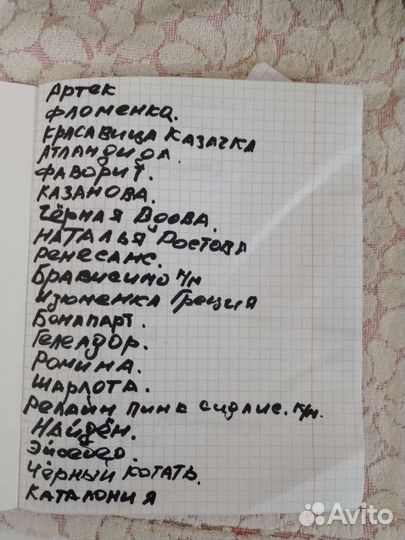 Артек
Фломенка.
Красавица Казачка
Атландида.
Фаворит.
Казанова.
Чёрная Вдова.
Наталья Ростова
Ренесанс.
Брависимо к/м
Изюменка Греция
Бонапарт.
Гелеадор.
Ромина.
Шарлота.
Релайн пинк сидлис. к/м.
Найдён.
Чёрный
Каталония
Avito